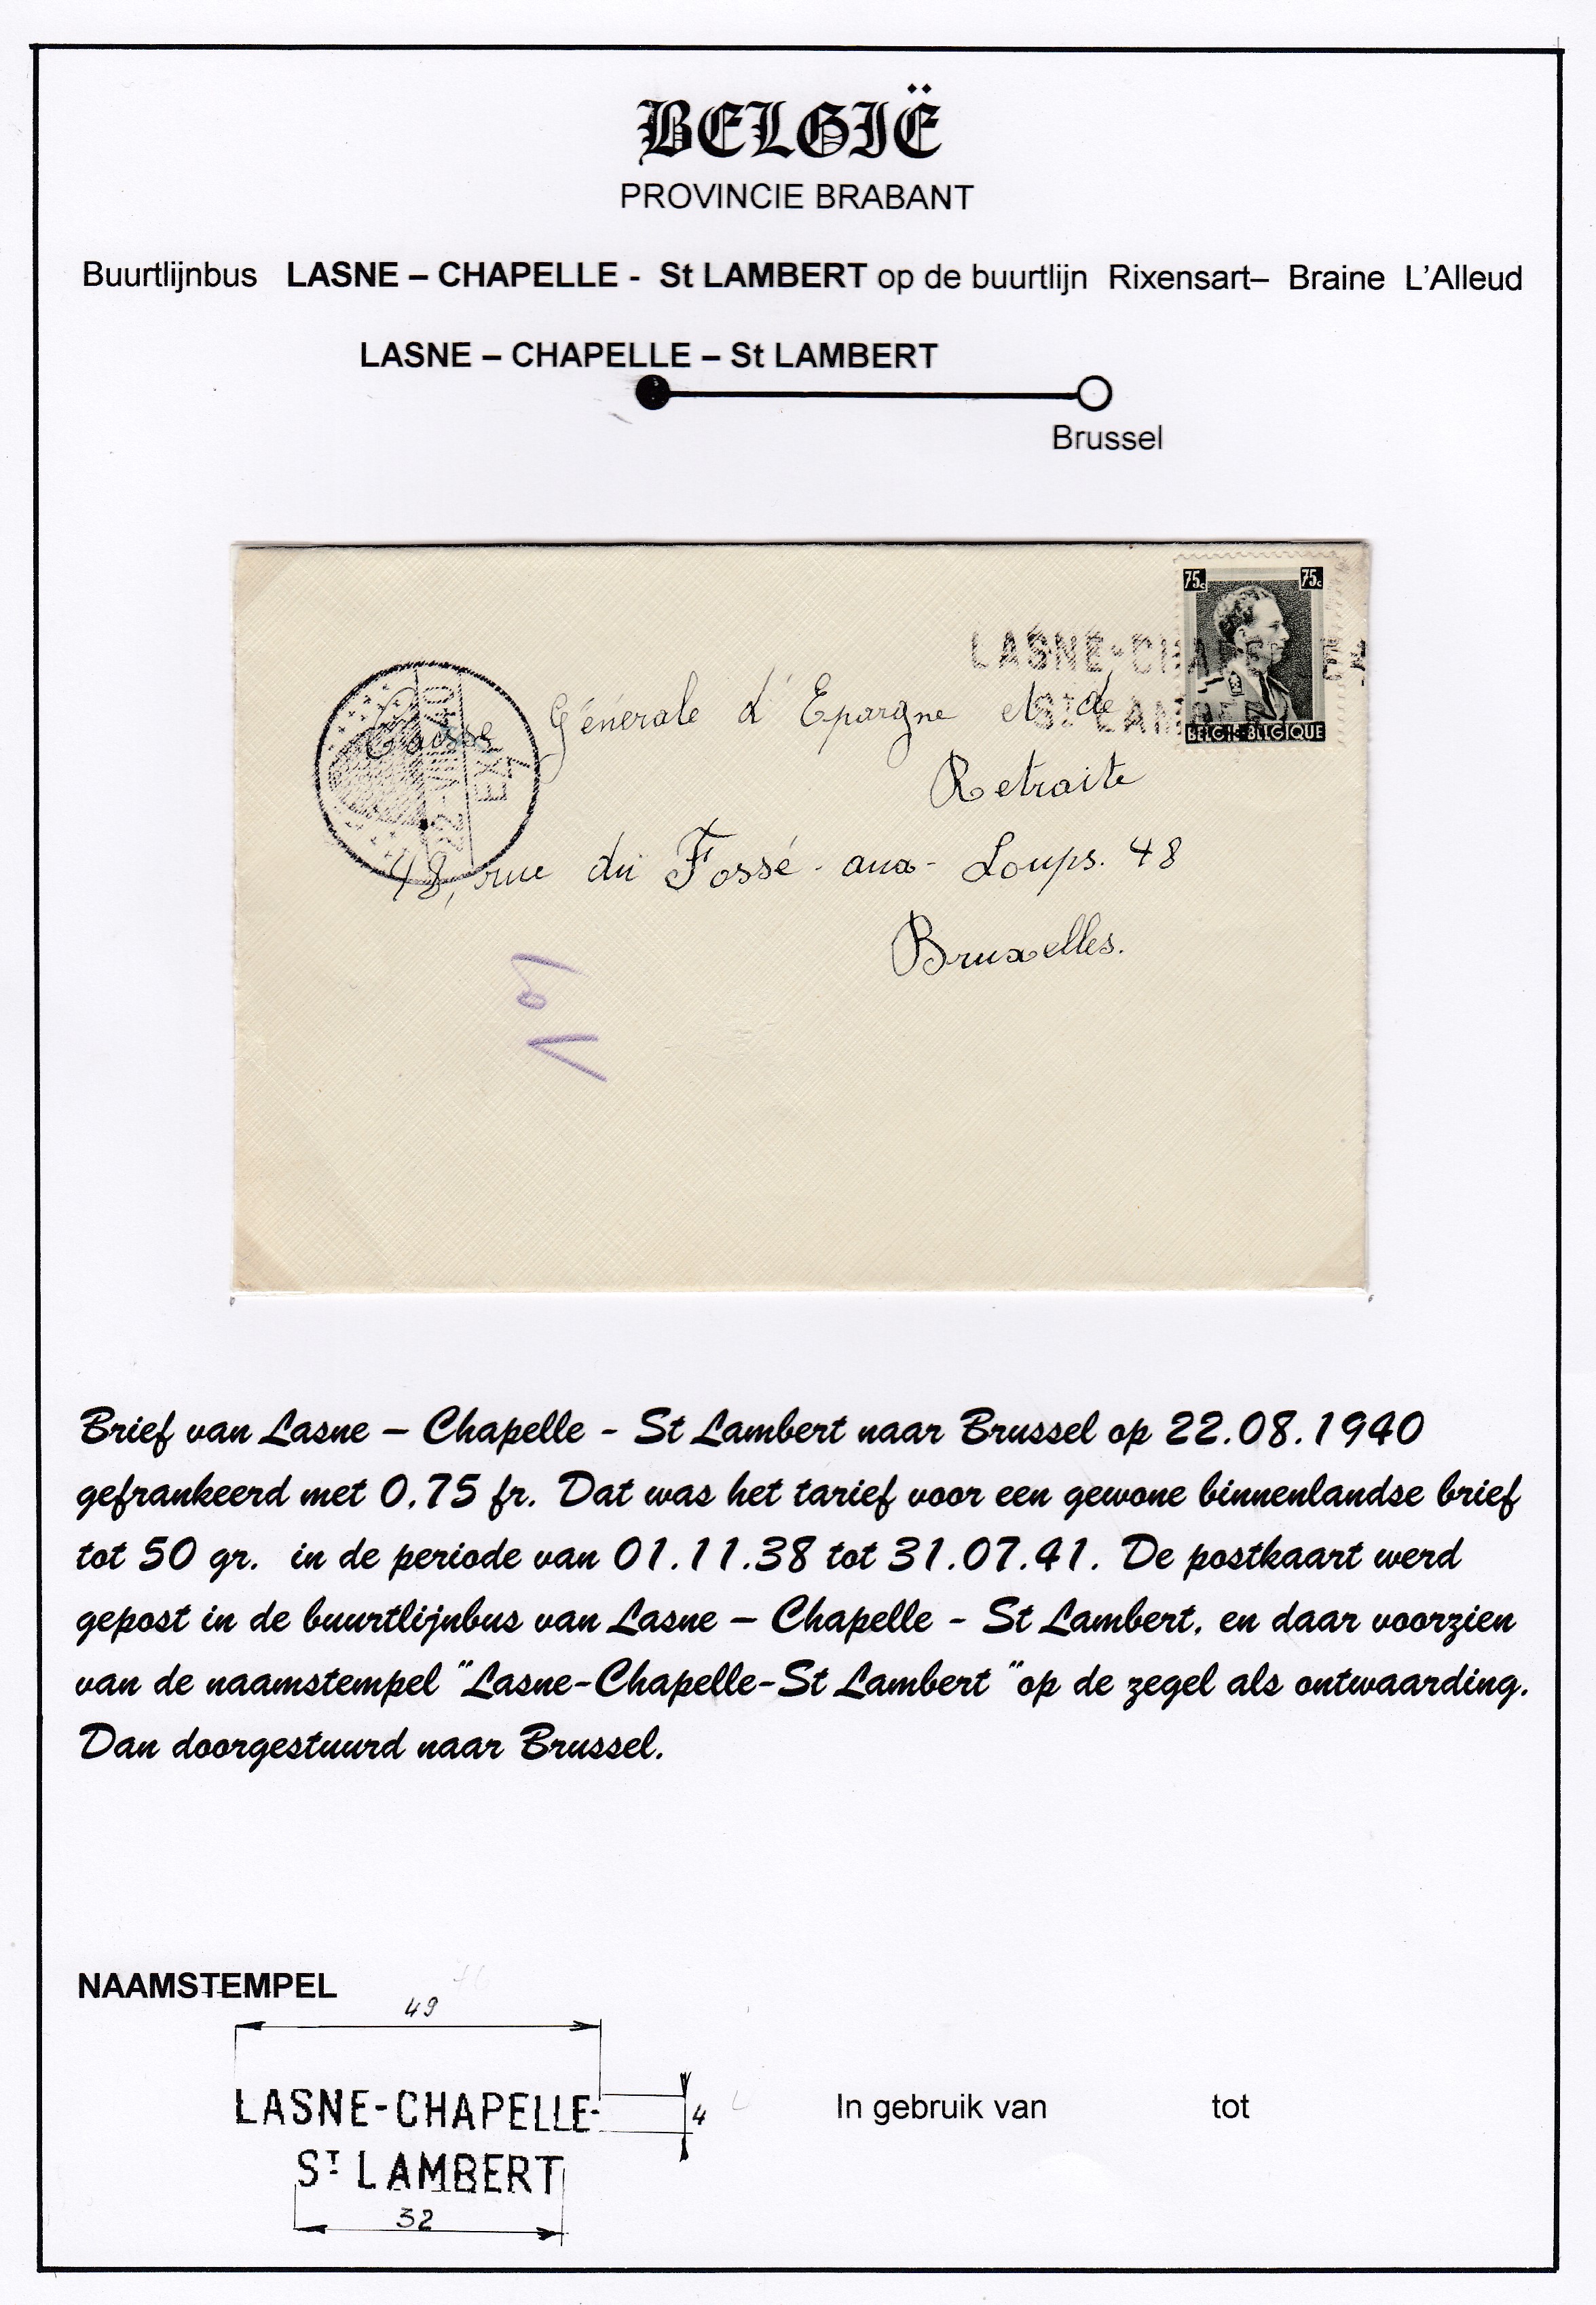 BELGIË
PROVINCIE BRABANT
Buurtlijnbus LASNE – CHAPELLE - St LAMBERT op de buurtlijn Rixensart– Braine L'Alleud
LASNE – CHAPELLE – St LAMBERT
Brussel
75c 75c
LASNE-CHAPELLE
ST LAMBE
BELGIE-BELGIQUE
22-VIII 40
Caisse Générale d'Epargne et de
Retraite
48, rue du Fossé-aux-Loups. 48
Bruxelles.
Brief van Lasne – Chapelle - St Lambert naar Brussel op 22.08.1940
gefrankeerd met 0,75 fr. Dat was het tarief voor een gewone binnenlandse brief
tot 50 gr. in de periode van 01.11.38 tot 31.07.41. De postkaart werd
gepost in de buurtlijnbus van Lasne – Chapelle - St Lambert, en daar voorzien
van de naamstempel "Lasne-Chapelle-St Lambert "op de zegel als ontwaarding.
Dan doorgestuurd naar Brussel.
NAAMSTEMPEL
49
LASNE-CHAPELLE-
4
In gebruik van tot
ST LAMBERT
32